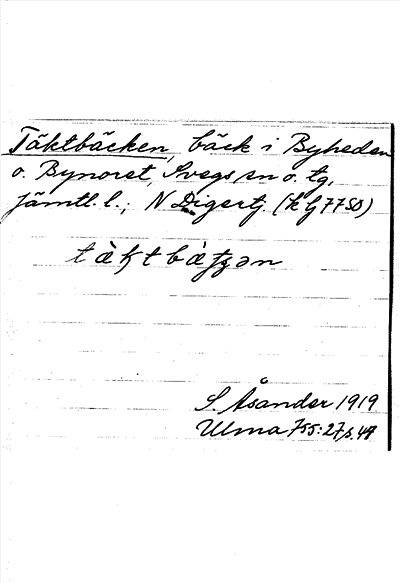 Täktbäcken, bäck i Byheden
o. Bynoret, Svegs sn o. tg,
Jämtl. l.; N Digertj. (k bj 7750)
S. Åsander 1919
Ulma 755:27, s. 47